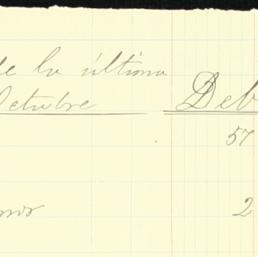 de la última
Octubre Deb
57
2